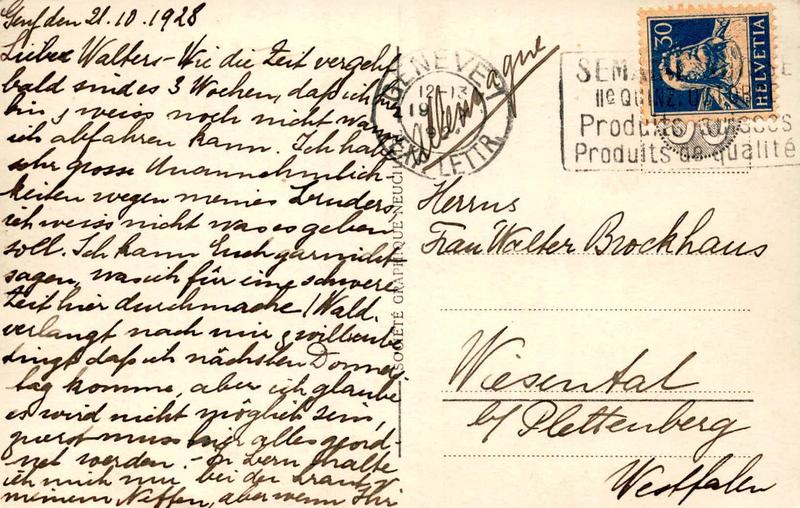 Genf den 21.10.1928
Liebe Walters - Wie die Zeit vergeht
bald sind es 3 Wochen, daß ich hier
bin, weiss noch nicht wann
ich abfahren kann. Ich habe
sehr grosse Unannehmlich-
keiten wegen meines Bruders
ich weiss nicht was es geben
soll. Ich kann Euch gar nicht
sagen, was ich für eine schwere
Zeit hier durchmache! Wald.
verlangt nach mir, will unbe
dingt daß ich nächsten Donners
tag komme, aber ich glaube
es wird nicht möglich sein,
zuerst muss hier alles geord-
net werden. - In Bern halte
ich mich nur bei der Braut v.
meinem Neffen, aber wenn Ihr
SOCIÉTÉ GRAPHIQUE NEUCH
Allemagne
GENÈVE 1
12-13
LETTR.
30
HELVETIA
SEMAINE SUISSE
IIe QUINZ. OCTOBRE
Produits suisses
Produits de qualité
Herrns
Frau Walter Brockhaus
Wiesental
b/ Plettenberg
Westfalen